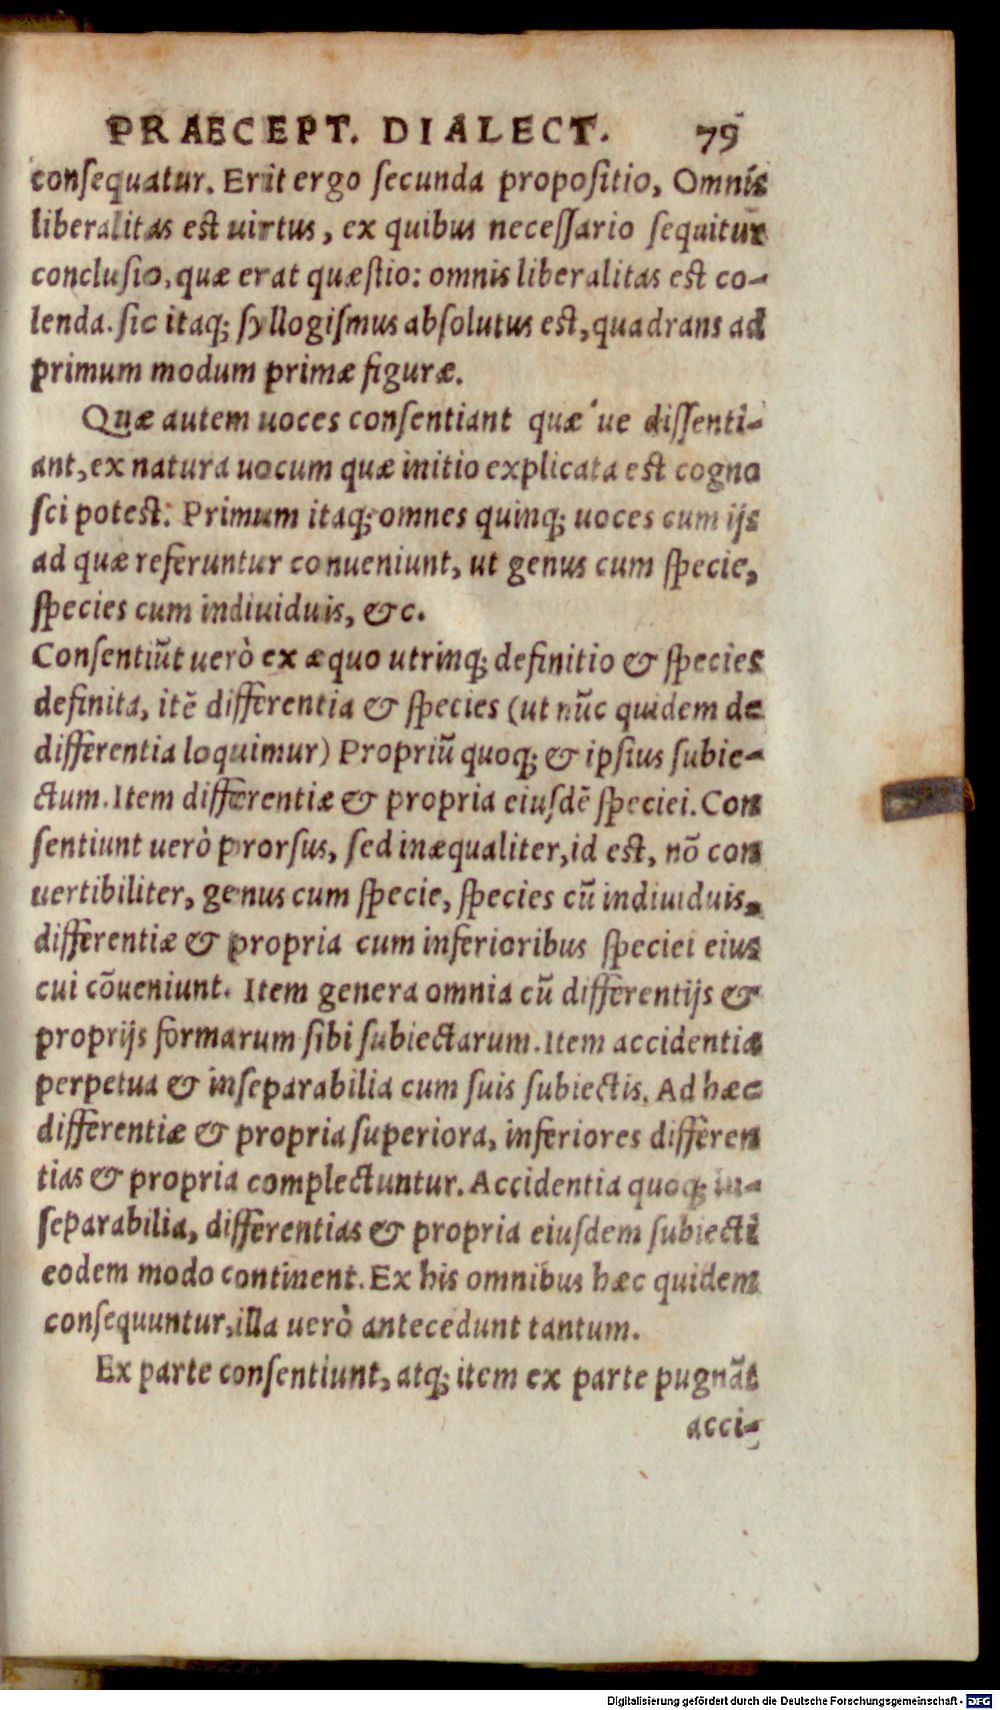 PRAECEPT. DIALECT. 79
consequatur. Erit ergo secunda propositio, Omnis
liberalitas est uirtus, ex quibus necessario sequitur
conclusio, quæ erat quæstio: omnis liberalitas est co-
lenda. sic itaq; syllogismus absolutus est, quadrans ad
primum modum primæ figuræ.
Quæ autem uoces consentiant quæ'ue dissenti-
ant, ex natura uocum quæ initio explicata est cogno
sci potest. Primum itaq; omnes quinq; uoces cum ijs
ad quæ referuntur conueniunt, ut genus cum specie,
species cum indiuiduis, &c.
Consentiũt uerò ex æquo utrinq; definitio & species
definita, itẽ differentia & species (ut nũc quidem de
differentia loquimur) Propriũ quoq; & ipsius subie-
ctum. Item differentiæ & propria eiusdẽ speciei. Con
sentiunt uerò prorsus, sed inæqualiter, id est, nõ con
uertibiliter, genus cum specie, species cũ indiuiduis,
differentiæ & propria cum inferioribus speciei eius
cui cõueniunt. Item genera omnia cũ differentijs &
proprijs formarum sibi subiectarum. Item accidentia
perpetua & inseparabilia cum suis subiectis. Ad hæc
differentiæ & propria superiora, inferiores differen
tias & propria complectuntur. Accidentia quoq; in-
separabilia, differentias & propria eiusdem subiecti
eodem modo continent. Ex his omnibus hæc quidem
consequuntur, illa uerò antecedunt tantum.
Ex parte consentiunt, atq; item ex parte pugnãt
acci-
Digitalisierung gefördert durch die Deutsche Forschungsgemeinschaft - DFG